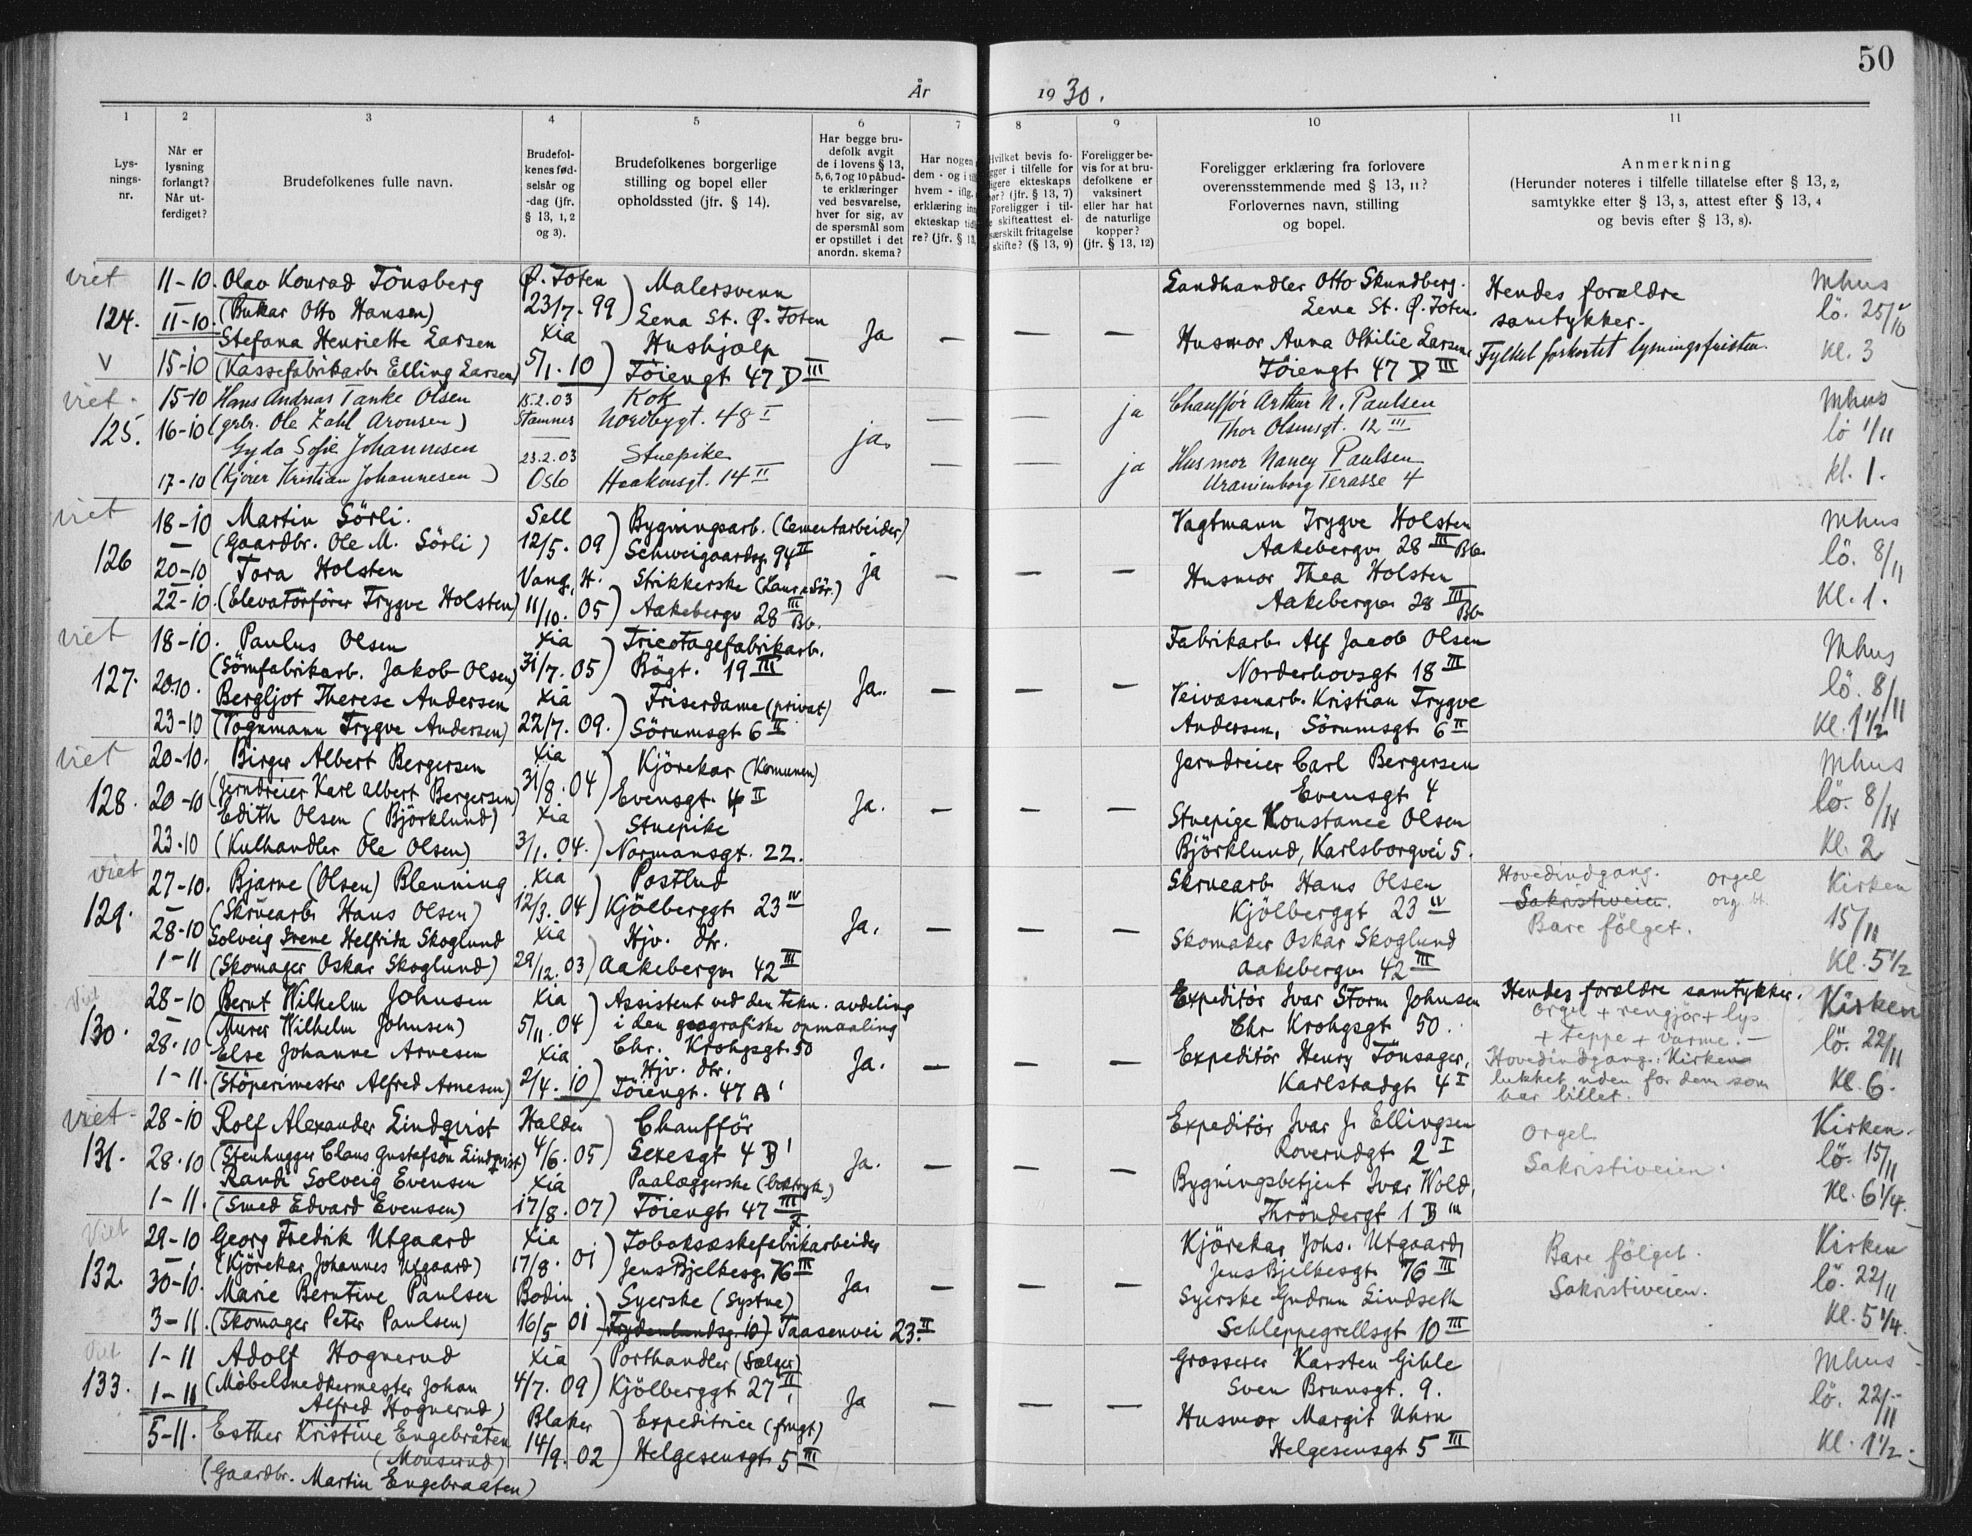 50
År 1930.
1 2 3 4 5 6 7 8 9 10 11
Lys-
nings-
nr.
Når er
lysning
forlangt?
Når ut-
ferdiget?
Brudefolkenes fulle navn.
Brudefol-
kenes fød-
selsår og
-dag (jfr.
§ 13, 1, 2
og 3).
Brudefolkenes borgerlige
stilling og bopel eller
opholdssted (jfr. § 14).
Har begge bru-
defolk avgit
de i lovens § 13,
5, 6, 7 og 10 påbud-
te erklæringer
ved besvarelse,
hver for sig, av
de spørsmål som
er opstillet i det
anordn. skema?
Har nogen
dem - og i
hvem - iflg.
erklæring
ekteskap
re? (jfr. § 13,
Hvilket bevis fo-
i tilfelle for
ekteskaps
(jfr. § 13, 7)
Foreligger i til-
skifteattest el-
særskilt fritagelse
skifte? (§ 13, 9)
Foreligger be-
vis for at bru-
defolkene er
vaksinert
eller har hat
de naturlige
kopper?
(jfr. § 13, 12)
Foreligger erklæring fra forlovere
overensstemmende med § 13, 11?
Forlovernes navn, stilling
og bopel.
Anmerkning
(Herunder noteres i tilfelle tillatelse efter § 13, 2,
samtykke efter § 13, 3, attest efter § 13, 4
og bevis efter § 13, 8).
viet 11-10. Olav Konrad Tönsberg Ø. Toten Malersvenn Landhandler Otto Skundberg. Hendes forældre Mhus
124. 11-10. (Bøkar Otto Hansen) 23/7. 99) Lena St. Ø. Toten Ja — — — Lena St. Ø. Toten. samtykker. lö. 25/10
Stefana Henriette Larsen Xia Hushjælp Husmor Anna Othilie Larsen Fylket forkortet lysningsfristen.
V 15-10 (Kassefabrikarb. Elling Larsen) 5/1. 10) Töiengt 47 D III Töiengt 47 D III Kl. 3
viet. 15-10 Hans Andreas Tanke Olsen 15.2.03 Kok — — Chauffør Arthur N. Paulsen Mhus
125. 16-10 (grbr. Ole Zahl Aronsen) Stamnes Nordbygt. 48 I ja Thor Olsensgt. 12 III lö 1/11
Gyda Sofie Johannesen 23.2.03 Stuepike ja. — — Husmor Nancy Paulsen
17-10 (kjører Kristian Johannesen) Oslo Haakonsgt. 14 II ja Uranienborg Terasse 4 kl. 1.
viet 18-10 Martin Sörli. Sell Bygningsarb. (Cementarbeider) Vagtmann Trygve Holsten Mhus
126 — (Gaardbr. Ole M. Sörli) 12/5. 09) Schweigaardsg. 94 II Aakebergv. 28 III Bb. lö. 8/11
20-10 Tora Holsten Vang. H. Strikkerske ja — — — Husmor Thea Holsten
22-10. (Elevatorförer Trygve Holsten) 11/10. 05) Aakebergv 28 III Bb. Aakebergv. 28 III Bb Kl. 1.
viet 18-10. Paulus Olsen Xia Tricotagefabrikarb. Fabrikarb. Alf Jacob Olsen Mhus
127. 20-10. (Sömfabrikarb. Jakob Olsen) 31/7. 05) Bögt. 19 III Ja. — — — Norderhovsgt 18 III lö. 8/11
Bergljot Therese Andersen Xia Friserdame (privat) Veivæsenarb. Kristian Trygve
23-10 (Vognmann Trygve Andersen) 22/7. 09.) Sörumsgt 6 II Andersen, Sörumsgt 6 II Kl. 1½
viet 20-10. Birger Albert Bergersen Xia Kjörekar (Komunen) Jerndreier Carl Bergersen Mhus
128. 20-10 (Jerndreier Karl albert Bergersen) 31/8. 04) Evensgt. 4 II Ja. — — — Evensgt 4 lö. 8/11
Edith Olsen (Björklund) Xia Stuepike Stuepige Konstance Olsen
23-10 (Kulhandler Ole Olsen) 3/1. 04.) Normansgt. 22. Björklund, Karlsborgvei 5. Kl. 2
viet 27-10. Bjarne (Olsen) Blenning Xia Postbud Skruearb Hans Olsen Hovedindgang. orgel Kirken
129. — (Skruearb. Hans Olsen) 12/3. 04) Kjölberggt 23 IV Ja. — — — Kjölberggt 23 IV Sakristiveien. 15/11
28-10 Solveig Irene Helfrida Skoglund Xia Hjv. dtr. Skomaker Oskar Skoglund Bare fölget.
1-11 (Skomager Oskar Skoglund) 29/12. 03) Aakebergv. 42 III Aakebergv. 42 III Kl. 5½
Viet 28-10 Bernt Wilhelm Johnsen Xia Assistent ved den tekn. avdeling Expeditör Ivar Storm Johnsen Hendes forældre samtykker. Kirken
130. (Murer Wilhelm Johnsen) 5/11. 04) i den geografiske opmaaling Chr Krohgsgt 50. orgel + rengjör + lys
28-10 Else Johanne Arnesen Xia Chr. Krohgsgt. 50 Hjv. dtr. Ja. — — — Expeditör Henry Tönsager, + teppe + varme. — lö. 22/11
1-11. (Stöperimester Alfred Arnesen) 2/4. 10) Töiengt. 47 A I Karlstadgt 4 I Hovedindgang. Kirken lukket uden for dem som har billet. Kl. 6.
viet- 28-10 Rolf Alexander Lindqvist Halden Chaufför Expeditör Ivar J. Ellingsen Orgel Kirken.
131. 28-10 (Stenhugger Claus Gustafson Lindqvist) 4/6. 05) Sexesgt 4 B I Ja. — — — Roverudgt 2 I Sakristiveien. lö. 15/11
Randi Solveig Evensen Xia Paalæggerske Bygningsbetjent Ivar Wold,
1-11. (Smed Edvard Evensen) 17/8. 07) Töiengt 47 III Thröndergt 1 B III Kl. 6¼.
Viet 29-10 Georg Fredrik Utgaard Xia Tobaksæskefabrikarbeider Kjörekar Johs. Utgaard, Bare fölget. Kirken
132. — (Kjörekar Johannes Utgaard) 17/8. 01) Jens Bjelkesg. 76 III Ja. — — — Jens Bjelkesgt 76 III Sakristiveien. lö. 22/11
30-10. Marie Berntine Paulsen Bodin Syerske (Systue) Syerske Gudrun Lindseth
3-11. (Skomager Peter Paulsen) 16/5 01) Frydenlundsg. 10) Taasenvei 23. II Schleppegrellsgt 10 III Kl. 5¼.
Viet 1-11 Adolf Hognerud Xia Porthandler (Sælger) Grosserer Karsten Gihle Mhus
133. 1-11 (Möbelsnedkermester Johan Alfred Hognerud) 4/7. 09) Kjölberggt 27 II Ja — — — Sven Brunsgt. 9. lö. 22/11
5-11. Esther Kristine Engebråten Blaker Expeditrice (frugt) Husmor Margit Uhrn
(Monserud) 14/9. 02 Helgesensgt 5 III Helgesensgt 5 III Kl. 1½.
(Gaardbr. Martin Engebraaten)